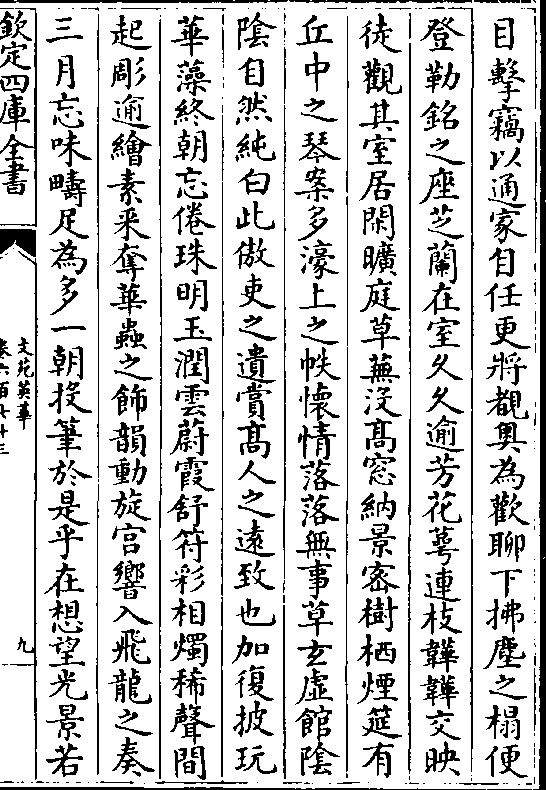 目擊竊以通家自任更將覩奧為歡聊下拂塵之榻便
登勒銘之座芝蘭在室久久逾芳花萼連枝韡韡交映
徒觀其室居閑曠庭草蕪没髙窓納景宻樹栖煙筵有
丘中之琴案多濠上之帙懐情落落無事草玄虚館陰
陰自然純白此傲吏之遺賞髙人之逺致也加復披玩
華藻終朝忘倦珠明玉潤雲蔚霞舒符彩相燭稀聲間
起彫逾繪素采奪華蟲之飾韻動旋宫響入飛龍之奏
三月忘味疇足為多一朝投筆於是乎在想望光景若
欽定四庫全書
文苑英華
卷六百七十三
九